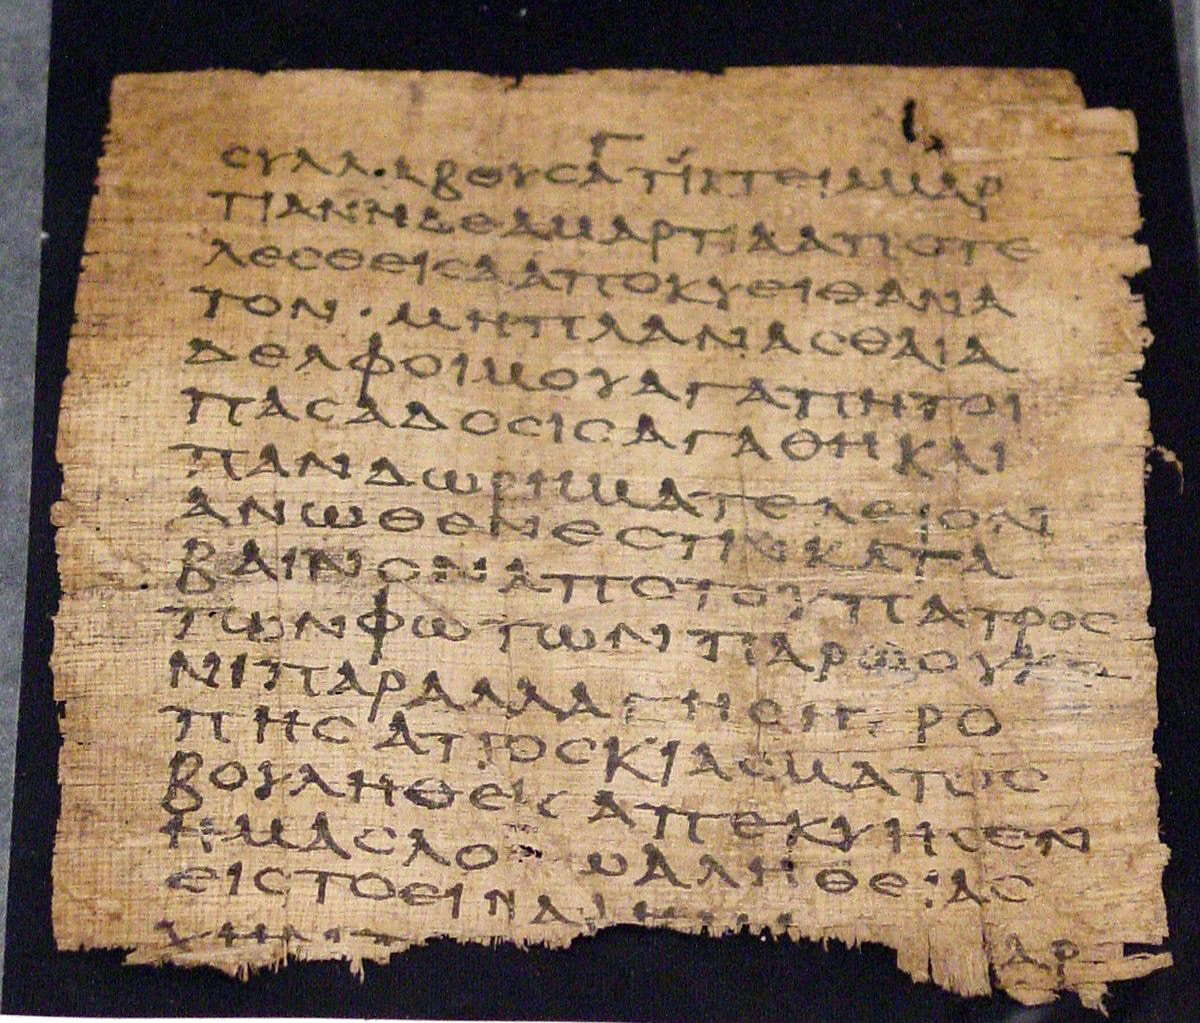 Γ
ΣΥΛΛΑΒΟΥΣΑ ΤΙΚΤΕΙ ΑΜΑΡ
ΤΙΑΝ Η ΔΕ ΑΜΑΡΤΙΑ ΑΠΟΤΕ
ΛΕΣΘΕΙΣΑ ΑΠΟΚΥΕΙ ΘΑΝΑ
ΤΟΝ · ΜΗ ΠΛΑΝΑΣΘΑΙ Α
ΔΕΛΦΟΙ ΜΟΥ ΑΓΑΠΗΤΟΙ
ΠΑΣΑ ΔΟΣΙΣ ΑΓΑΘΗ ΚΑΙ
ΠΑΝ ΔΩΡΗΜΑ ΤΕΛΕΙΟΝ
ΑΝΩΘΕΝ ΕΣΤΙΝ ΚΑΤΑ
ΒΑΙΝΟΝ ΑΠΟ ΤΟΥ ΠΑΤΡΟΣ
ΤΩΝ ΦΩΤΩΝ ΠΑΡ Ω ΟΥΚ Ε
ΝΙ ΠΑΡΑΛΛΑΓΗΣ Η ΤΡΟ
ΠΗΣ ΑΠΟΣΚΙΑΣΜΑΤΟΣ
ΒΟΥΛΗΘΕΙΣ ΑΠΕΚΥΗΣΕΝ
ΗΜΑΣ ΛΟΓΩ ΑΛΗΘΕΙΑΣ
ΕΙΣ ΤΟ ΕΙΝΑΙ
ΑΡ